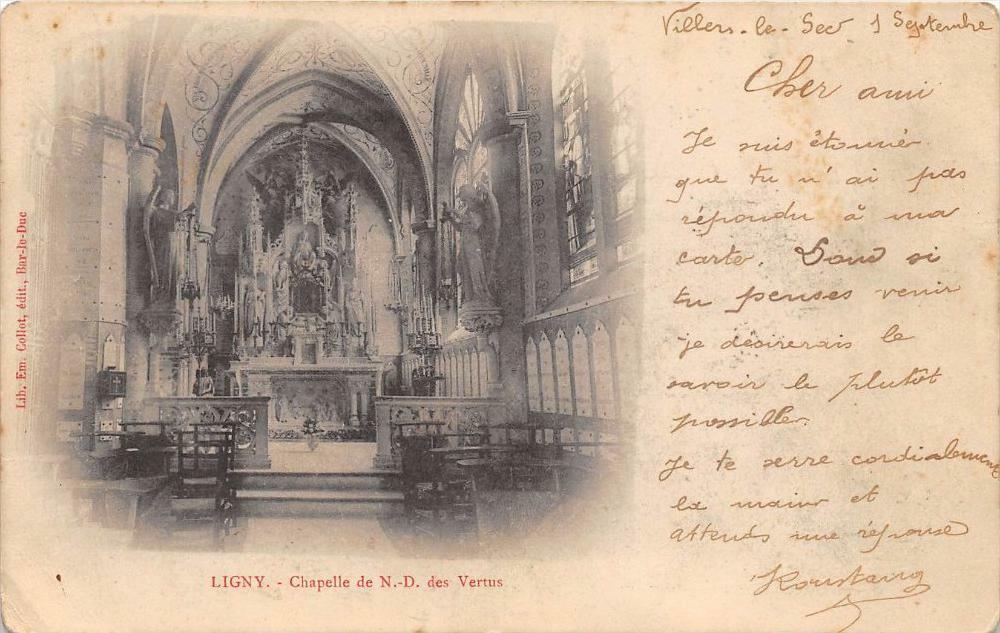 Villers-le-Sec 1 Septembre
Cher ami
Je suis étonné
que tu n'ai pas
répondu à ma
carte. Donc si
tu penses venir
je désirerais le
savoir le plutôt
possible.
Je te serre cordialement
la main et
attends une réponse
Lib. Em. Collot, édit., Bar-le-Duc
LIGNY. - Chapelle de N.-D. des Vertus